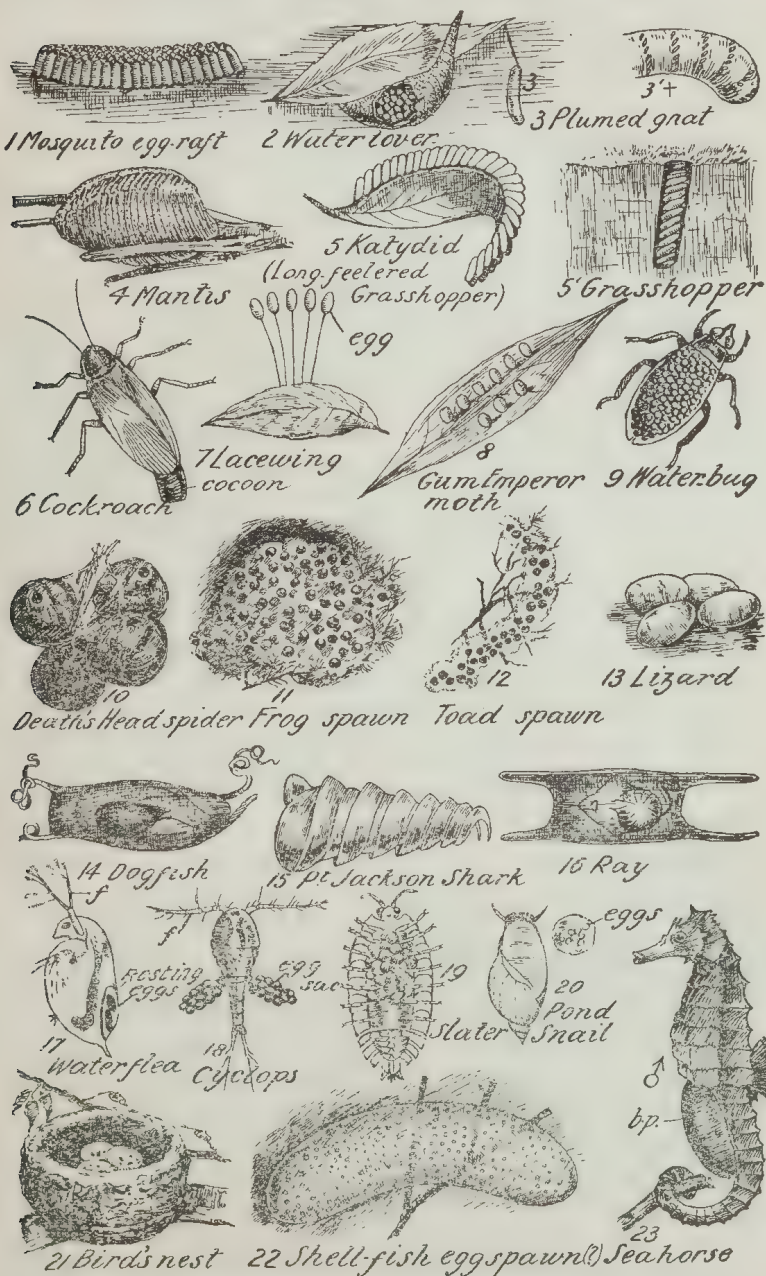 3
3'+
1 Mosquito egg-raft
2 Water lover
3 Plumed gnat
4 Mantis
5 Katydid
(Long-feelered
Grasshopper)
5' Grasshopper
egg
6 Cockroach
7 Lacewing
cocoon
8
Gum Emperor
moth
9 Waterbug
10
Death's Head spider
11
Frog spawn
12
Toad spawn
13 Lizard
14 Dogfish
15 Pt Jackson Shark
16 Ray
f
Resting
eggs
17
Waterflea
f
egg
sac
18
Cyclops
19
Slater
eggs
20
Pond
Snail
♂
b.p.
21 Bird's nest
22 Shell-fish egg spawn(?)
23
Seahorse